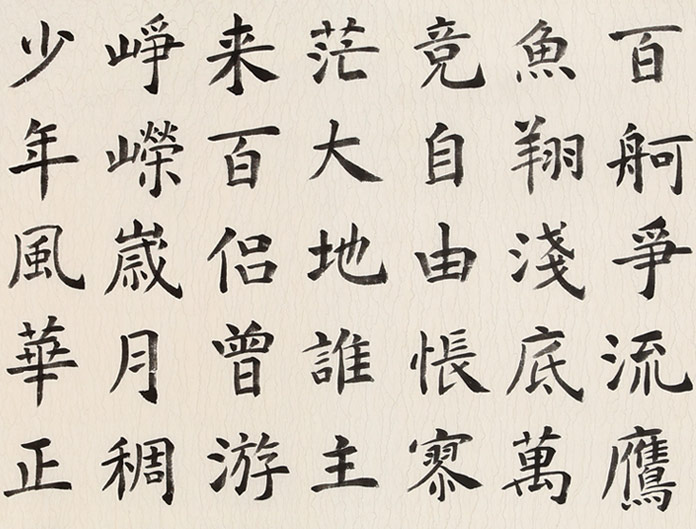 百舸爭流鷹
魚翔淺底萬
竟自由悵寥
茫大地誰主
来百侣曾游
崢嶸歲月稠
少年風華正